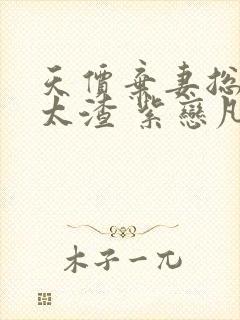 天價棄妻總
太渣 紫戀凡
木子一兀